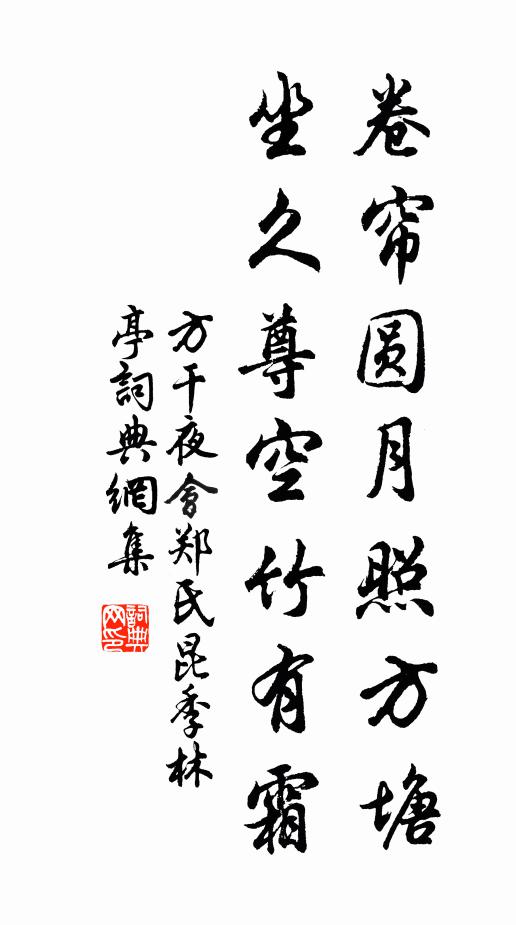 卷帘圆月照方塘
坐久尊空竹有霜
方干夜会郑氏昆季林
亭詞典網集
詞典
网印